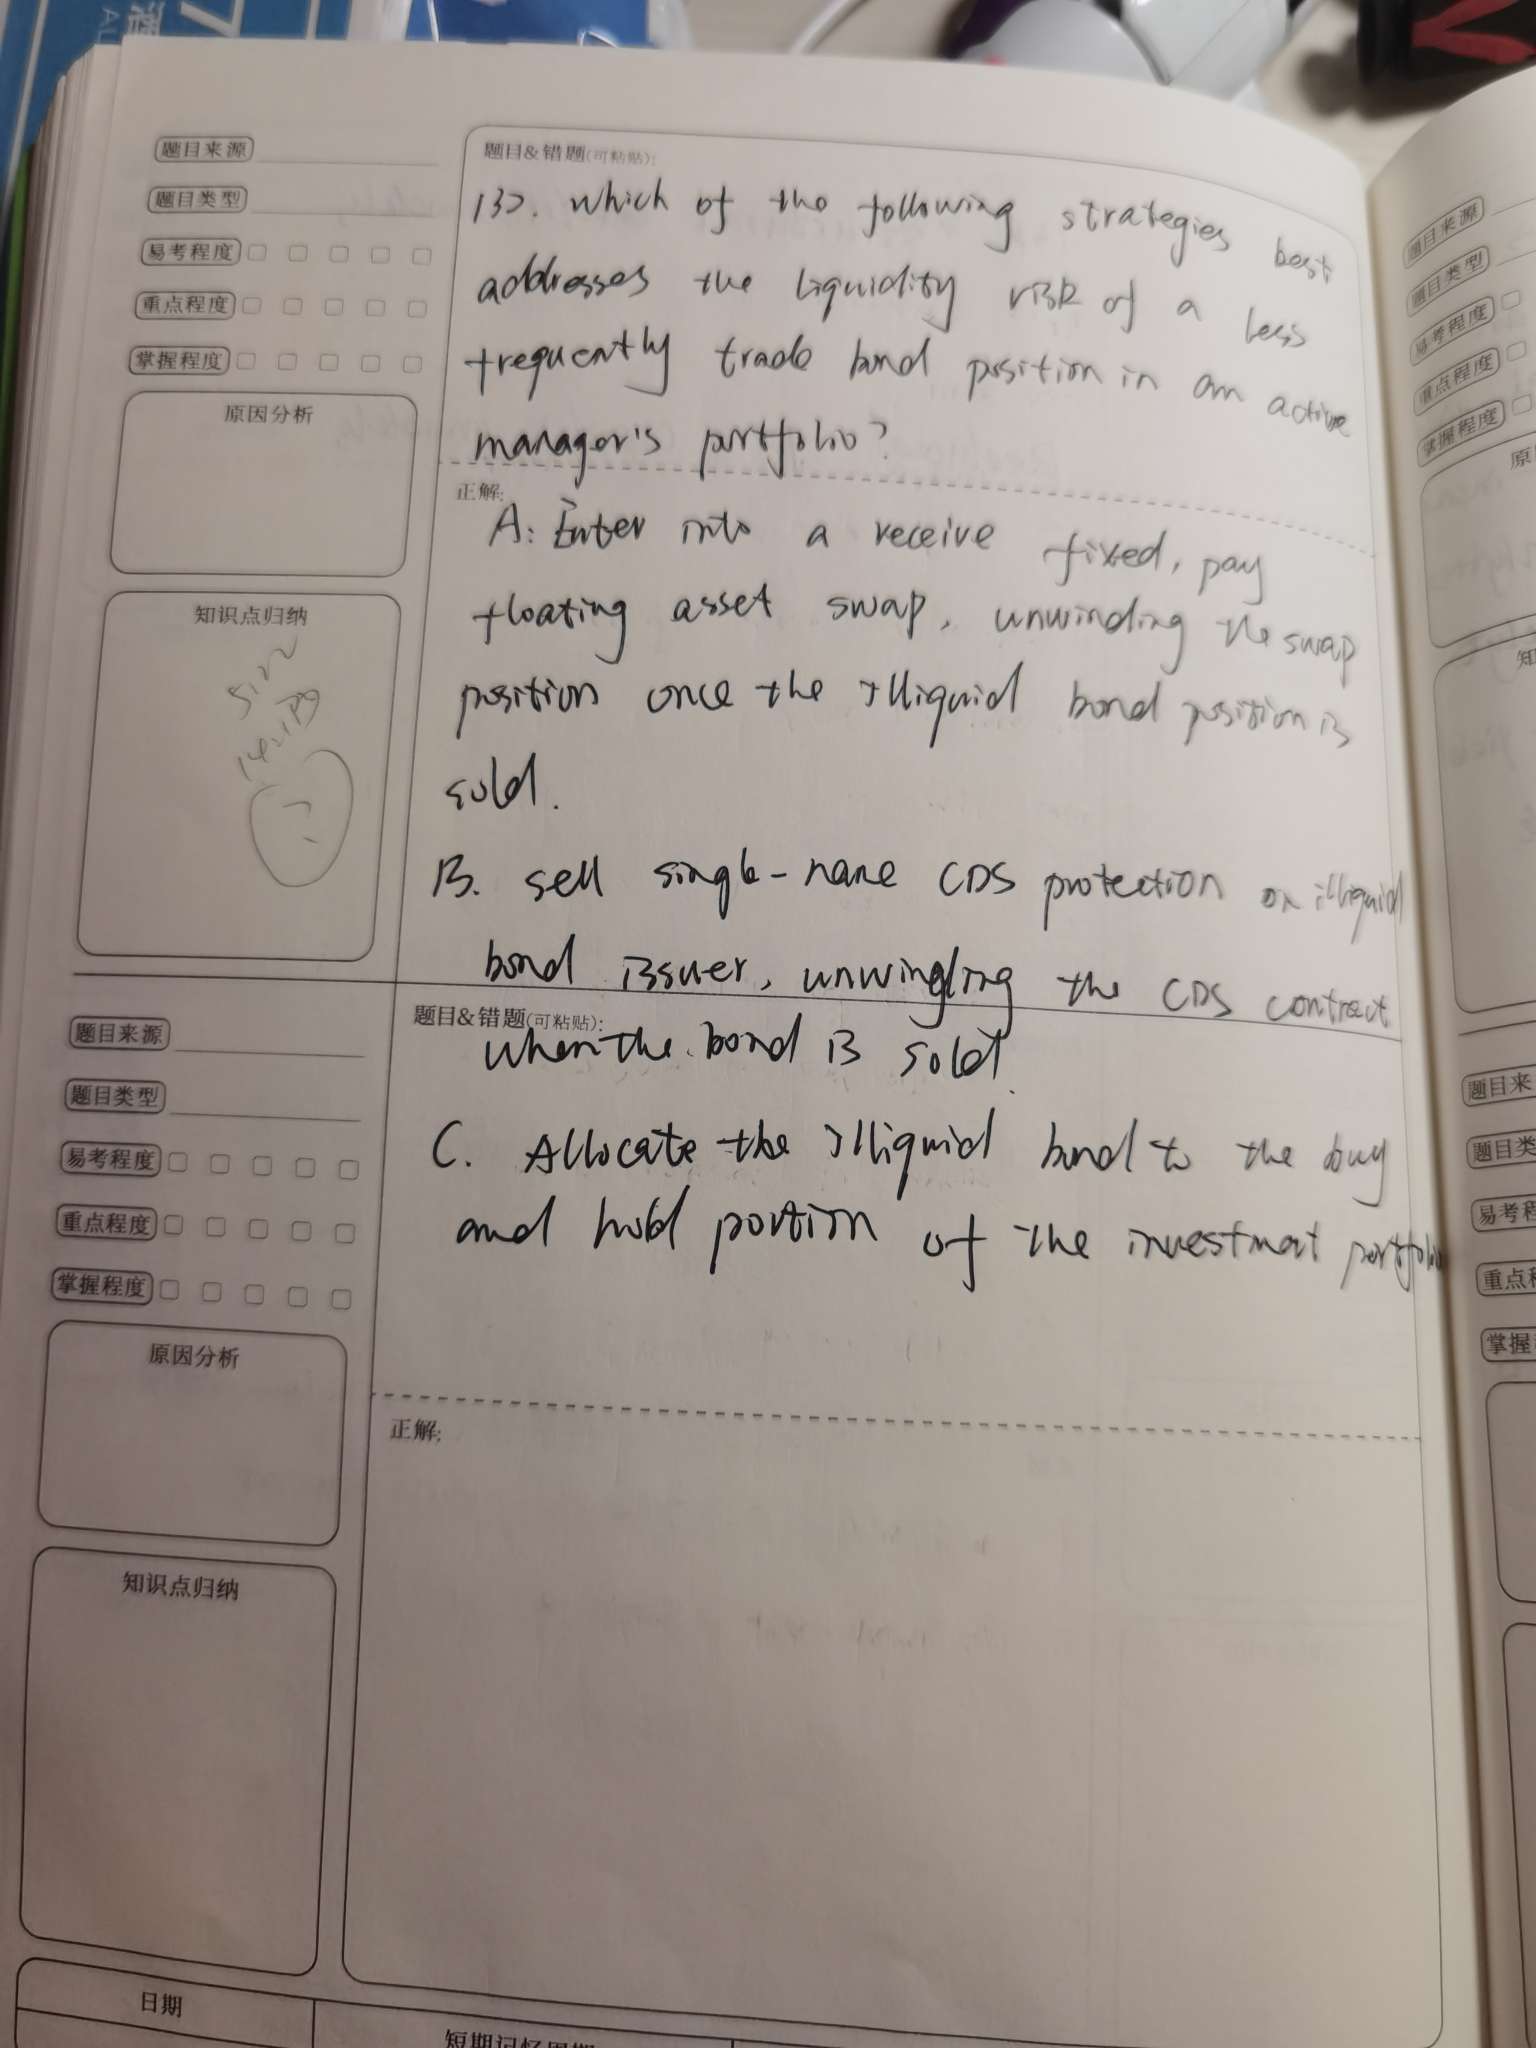 题目来源
题目类型
易考程度
重点程度
掌握程度
原因分析
知识点归纳
5.22
题目&错题(可粘贴):
137. Which of the following strategies best
addresses the liquidity risk of a less
frequently trade bond position in an active
manager's portfolio?
正解:
A: Enter into a receive fixed, pay
floating asset swap, unwinding the swap
position once the illiquid bond position is
sold.
B. sell single-name CDS protection on illiquid
bond issuer, unwingling the CDS contract
when the bond is sold.
C. Allocate the illiquid bond to the buy
and hold portion of the investmat portfolio
题目来源
题目类型
易考程度
重点程度
掌握程度
原因分析
知识点归纳
题目&错题(可粘贴):
正解:
日期
短期记忆周期
题目来源
题目类型
易考程度
重点程度
掌握程度
原
知
题目来
题目类
易考程
重点程
掌握